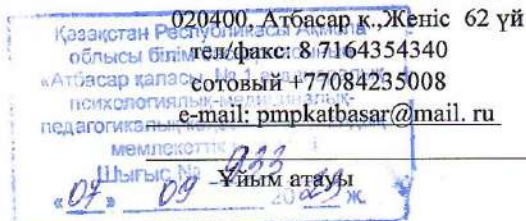 020400, Атбасар к.,Женіс 62 үй
тел/факс: 8 7164354340
сотовый +77084235008
e-mail: pmpkatbasar@mail. ru
Ұйым атауы
Қазақстан Республикасы Ақмола
облысы білім
«Атбасар қаласы, № 1
психологиялық-медициналық-
педагогикалық
мемлекеттік
Шығыс № 933
«07» 09 2023 ж.